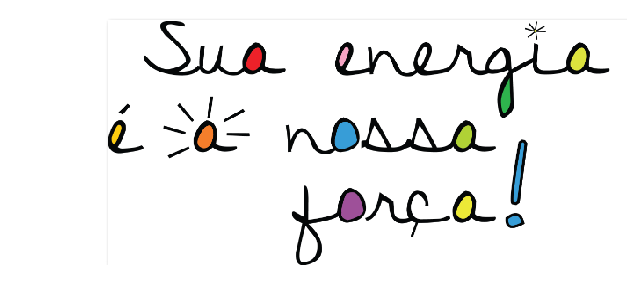 Sua energia
é a nossa
força!